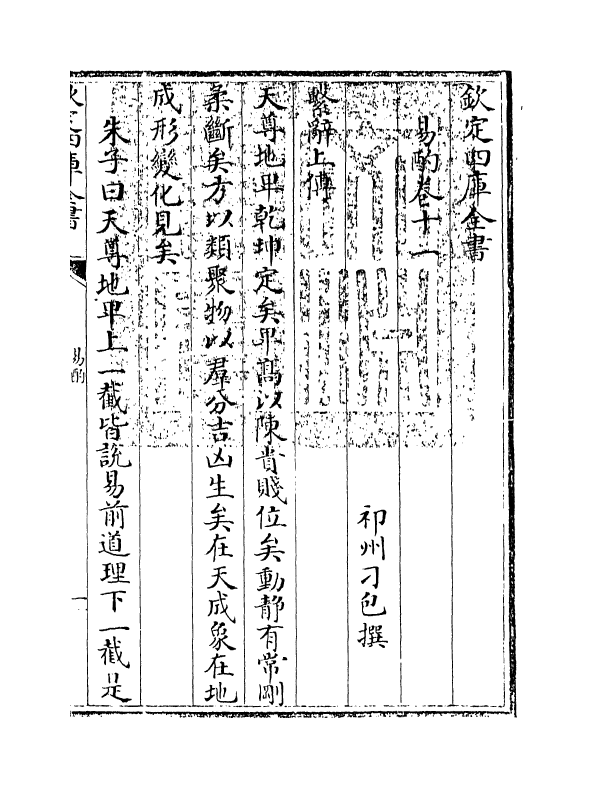 欽定四庫全書
易酌卷十一
祁州刁包撰
繫辭上傳
天尊地卑乾坤定矣卑髙以陳貴賤位矣動靜有常剛
柔斷矣方以類聚物以羣分吉凶生矣在天成象在地
成形變化見矣
朱子曰天尊地卑上一截皆說易前道理下一截是
易酌
一